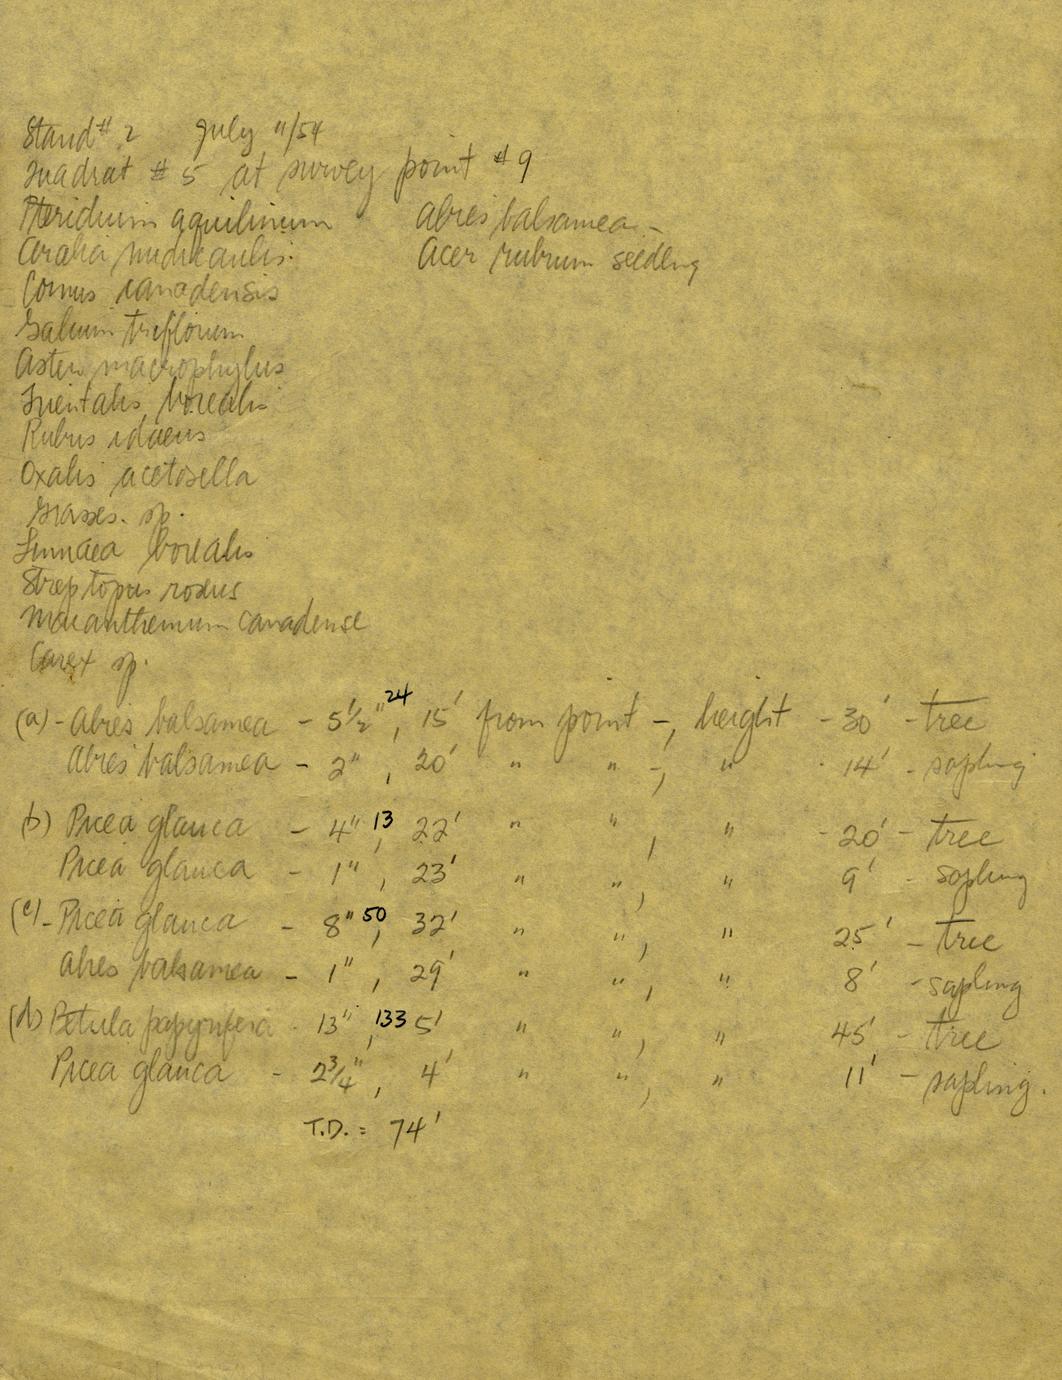 Stand # 2 July 11/54
Quadrat # 5 at survey point # 9
Pteridium aquilinum Abies balsamea -
Aralia nudicaulis. Acer rubrum seedling
Cornus canadensis
Galium triflorum
Aster macrophyllus
Trientalis borealis
Rubus idaeus
Oxalis acetosella
Grasses. sp.
Linnaea borealis
Streptopus roseus
Maianthemum canadense
Carex sp.
(a) - Abies balsamea - 5 1/2" 24, 15' from point -, height - 30' - tree
Abies balsamea - 2", 20' " " -, " - 14' - sapling
(b) Picea glauca - 4" 13, 22' " ", " - 20' - tree
Picea glauca - 1", 23' " ", " 9' - sapling
(c) - Picea glauca - 8" 50, 32' " ", " 25' - tree
Abies balsamea - 1", 29' " ", " 8' - sapling
(d) Betula papyrifera - 13", 133 5' " ", " 45' - tree
Picea glauca - 2 3/4", 4' " ", " 11' - sapling.
T.D. = 74'